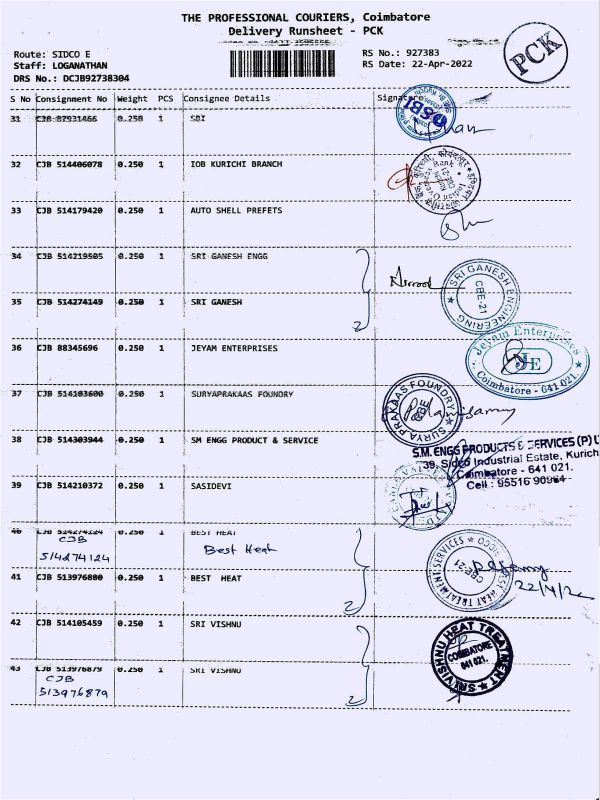 THE PROFESSIONAL COURIERS, Coimbatore
Delivery Runsheet - PCK
PCK
Route: SIDCO E
Staff: LOGANATHAN
DRS No.: DCJB92738304
RS No.: 927383
RS Date: 22-Apr-2022
S No Consignment No Weight PCS Consignee Details Signature
31 CJB 87931466 0.250 1 SBI
SBI
32 CJB 514406078 0.250 1 IOB KURICHI BRANCH
33 CJB 514179420 0.250 1 AUTO SHELL PREFETS
34 CJB 514219505 0.250 1 SRI GANESH ENGG
2
SRI GANESH ENGINEERING
CBE-21
35 CJB 514274149 0.250 1 SRI GANESH
36 CJB 88345696 0.250 1 JEYAM ENTERPRISES
Jeyam Enterprises
JE
Coimbatore - 641 021.
37 CJB 514103600 0.250 1 SURYAPRAKAAS FOUNDRY
SURYA PRAKAAS FOUNDRY
CBE
38 CJB 514303944 0.250 1 SM ENGG PRODUCT & SERVICE
S.M. ENGG PRODUCTS & SERVICES (P) L
39, Sidco Industrial Estate, Kurich
Coimbatore - 641 021.
Cell : 95516 90964
39 CJB 514210372 0.250 1 SASIDEVI
40 CJB 514274124 0.250 1 BEST HEAT
CJB
514274124
Best Heat
2
BEST HEAT TREATMENT SERVICES
SIDCO
CBE-21
22/4/22
41 CJB 513976880 0.250 1 BEST HEAT
42 CJB 514105459 0.250 1 SRI VISHNU
2
SRI VISHNU HEAT TREATMENT
COIMBATORE
641 021.
43 CJB 513976879 0.250 1 SRI VISHNU
CJB
513976879